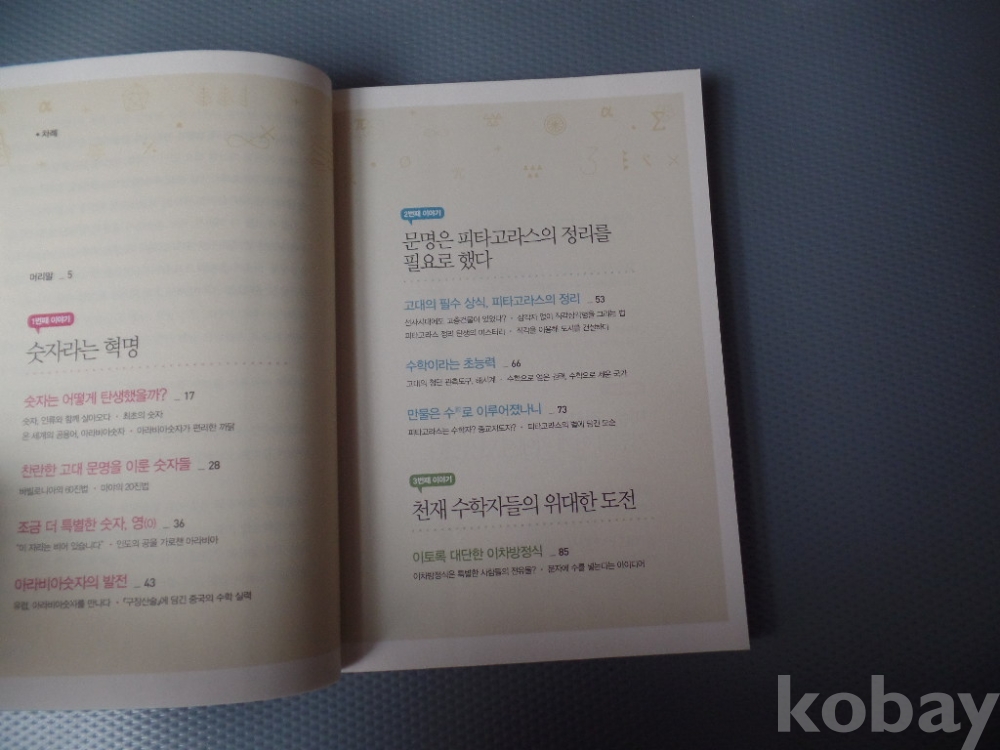 • 차례
머리말 _ 5
1번째 이야기
숫자라는 혁명
숫자는 어떻게 탄생했을까? _ 17
숫자, 인류와 함께 살아오다 • 최초의 숫자
온 세계의 공용어, 아라비아숫자 • 아라비아숫자가 편리한 까닭
찬란한 고대 문명을 이룬 숫자들 _ 28
바빌로니아의 60진법 • 마야의 20진법
조금 더 특별한 숫자, 영(0) _ 36
"이 자리는 비어 있습니다" • 인도의 공을 가로챈 아라비아
아라비아숫자의 발전 _ 43
유럽, 아라비아숫자를 만나다 • 『구장산술』에 담긴 중국의 수학 실력
2번째 이야기
문명은 피타고라스의 정리를
필요로 했다
고대의 필수 상식, 피타고라스의 정리 _ 53
선사시대에도 고층건물이 있었다? • 삼각자 없이 직각삼각형을 그리는 법
피타고라스 정리 탄생의 미스터리 • 직각을 이용해 도시를 건설하다
수학이라는 초능력 _ 66
고대의 첨단 관측도구, 해시계 • 수학으로 얻은 권력, 수학으로 세운 국가
만물은 수로 이루어졌나니 _ 73
피타고라스는 수학자? 종교지도자? • 피타고라스의 별에 담긴 모순
3번째 이야기
천재 수학자들의 위대한 도전
이토록 대단한 이차방정식 _ 85
이차방정식은 특별한 사람들의 전유물? • 문자에 수를 넣는다는 아이디어
kobay